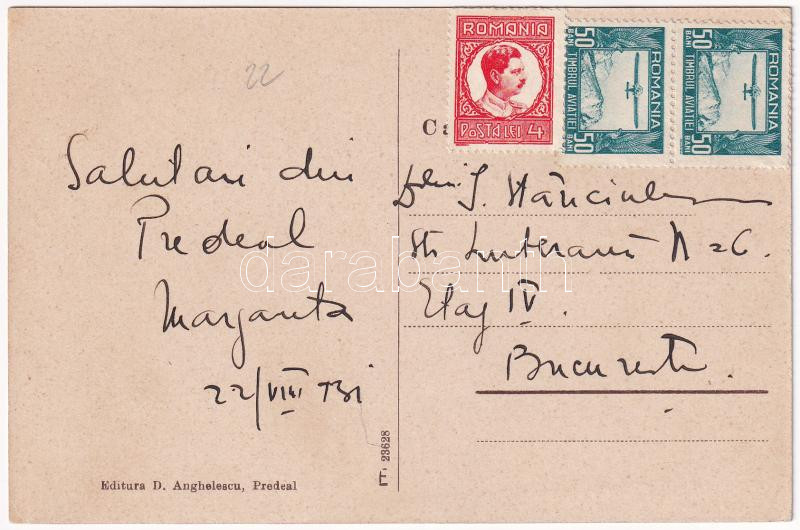 22
Salutari din
Predeal
Margareta
22/VIII 931
Editura D. Anghelescu, Predeal
F. 23628
ROMANIA
POSTA LEI 4
50 BANI TIMBRUL AVIATIEI BANI 50
ROMANIA
50 BANI TIMBRUL AVIATIEI BANI 50
ROMANIA
Ca
Dlui J. Stănciulescu
Str Luterană N 26.
Etaj IV.
Bucureşti.
darabanth